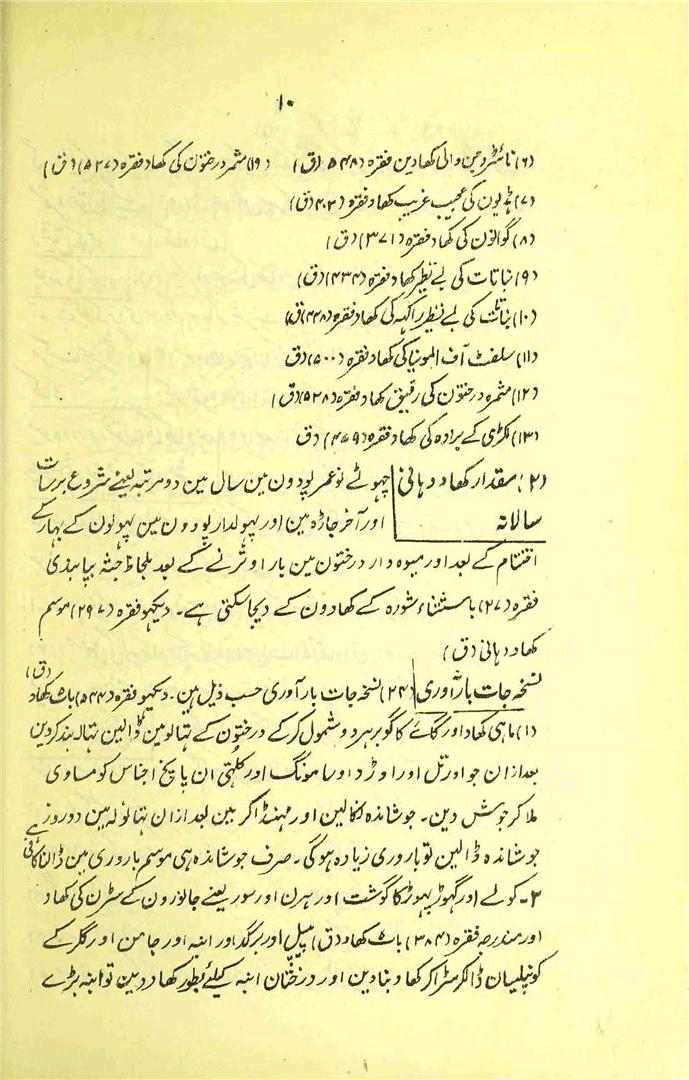 ۱۰
(۶) نائٹروجین والی کھادین فقرہ (۵۴۸) (ق) (۱۹) مثمر درختون کی کھاد فقرہ (۵۲۷) (ق)
(۷) ہڈیون کی عجیب غریب کھاد فقرہ (۴۰۲) (ق)
(۸) گوالون کی کھاد فقرہ (۳۷۱) (ق)
(۹) نباتات کی بے نظیر کھاد فقرہ (۴۳۴) (ق)
(۱۰) نباتات کی بے نظیر راکہہ کی کھاد فقرہ (۴۳۸) (ق)
(۱۱) سلفٹ آف المونیا کی کھاد فقرہ (۵۰۰) (ق
(۱۲) مثمرہ درختون کی رقیق کھاد فقرہ (۵۲۸) (ق)
(۱۳) لکڑی کے برادہ کی کھاد فقرہ (۴۶۹) (ق
(۲) مقدار کھاد دہانی سالانہ
چہوٹے نوعمر پودون مین سال مین دو مرتبہ یعنے شروع برسات
اور آخر جاڑہ مین اور پہولدار پودون مین پہولون کے بہار کے
اختتام کے بعد اور میوہ دار درختون مین بار اوترنے کے بعد بلحاظ جثہ بپابندی
فقرہ (۲۷) باستثناء شورہ کے کھادون کے دیجاسکتی ہے۔ دیکہو فقرہ (۲۹۷) موسم
کھاد دہانی (ق)
نسخہ جات بار آوری (۲۴) نسخہ جات بار آوری حسب ذیل ہین۔ دیکہو فقرہ (۵۴۴) باب کھاد (ق)
(۱) ماہی کھاد اور گائے کا گوبر ہر دو شمول کرکے درختون کے تہالومین ڈالین تہالہ بند کردین
بعد ازان جو اور تل اور اوڑد اور مونگ اور کلتہی ان پانچ اجناس کو مساوی
ملا کر جوش دین۔ جوشاندہ نکالین اور ٹہنڈا کر لین بعد ازان تہانولہ مین دو روز
جوشاندہ ڈالین تو باروری زیادہ ہوگی۔ صرف جوشاندہ ہی موسم باروری مین ڈالنا کافی ہے
۲۔ کولے اور گہوڑ پہوڑ کا گوشت اور ہرن اور سور یعنے جانورون کے سڑن کی کھاد
اور مندرجہ فقرہ (۳۸۴) باب کھاد (ق) پیپل اور برگد اور انبہ اور جامن اور گلر کے
کونپلیان ڈالکر سڑا کر کھاد بنادین اور درختان انبہ کیلئے بطور کھاد دین تو انبہ بڑے